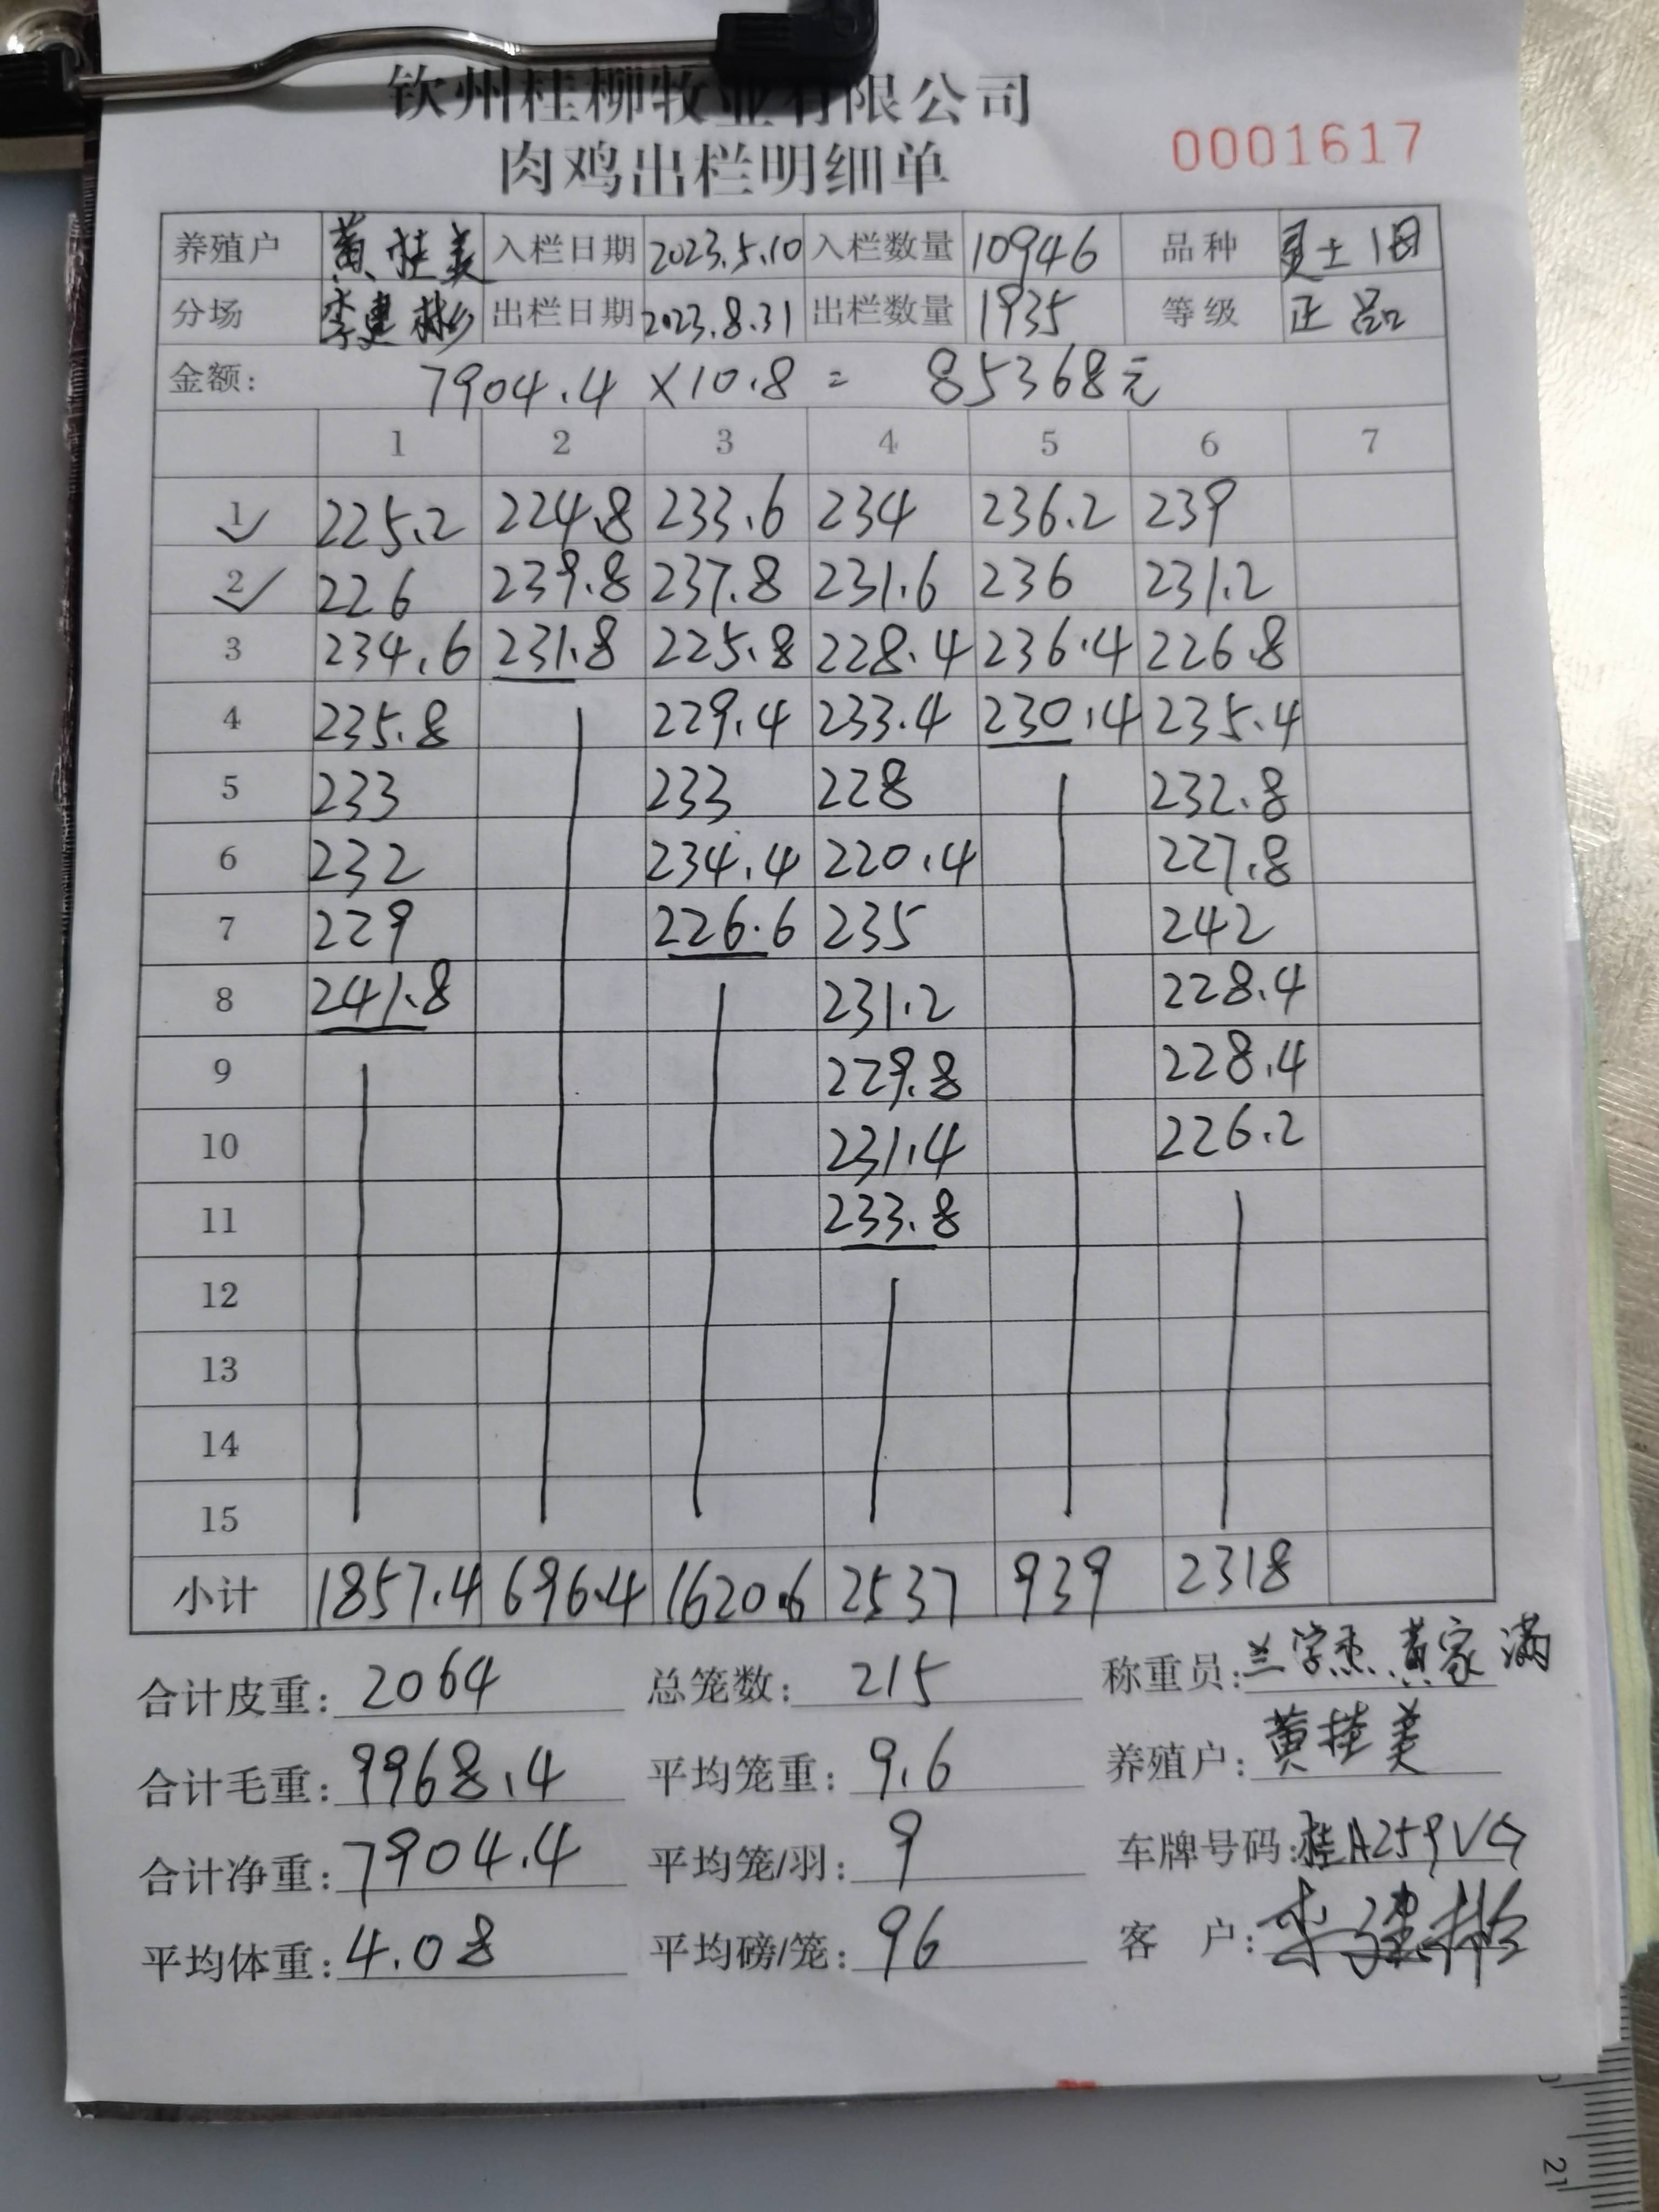 钦州桂柳牧业有限公司
肉鸡出栏明细单
0001617
养殖户 黄桂美 入栏日期 2023.5.10 入栏数量 10946 品种
分场 李建彬 出栏日期 2023.8.31 出栏数量 1935 等级 正品
金额: 7904.4 ×10.8 = 85368元
1 2 3 4 5 6 7
1 225.2 224.8 233.6 234 236.2 239
2 226 239.8 237.8 231.6 236 231.2
3 234.6 231.8 225.8 228.4 236.4 226.8
4 235.8 229.4 233.4 230.4 235.4
5 233 233 228 232.8
6 232 234.4 220.4 227.8
7 229 226.6 235 242
8 241.8 231.2 228.4
9 229.8 228.4
10 231.4 226.2
11 233.8
12
13
14
15
小计 1857.4 696.4 1620.6 2537 939 2318
合计皮重: 2064 总笼数: 215 称重员: 黄家满
合计毛重: 9968.4 平均笼重: 9.6 养殖户: 黄桂美
合计净重: 7904.4 平均笼/羽: 9 车牌号码: 桂A259VG
平均体重: 4.08 平均磅/笼: 96 客 户: 李建彬
21